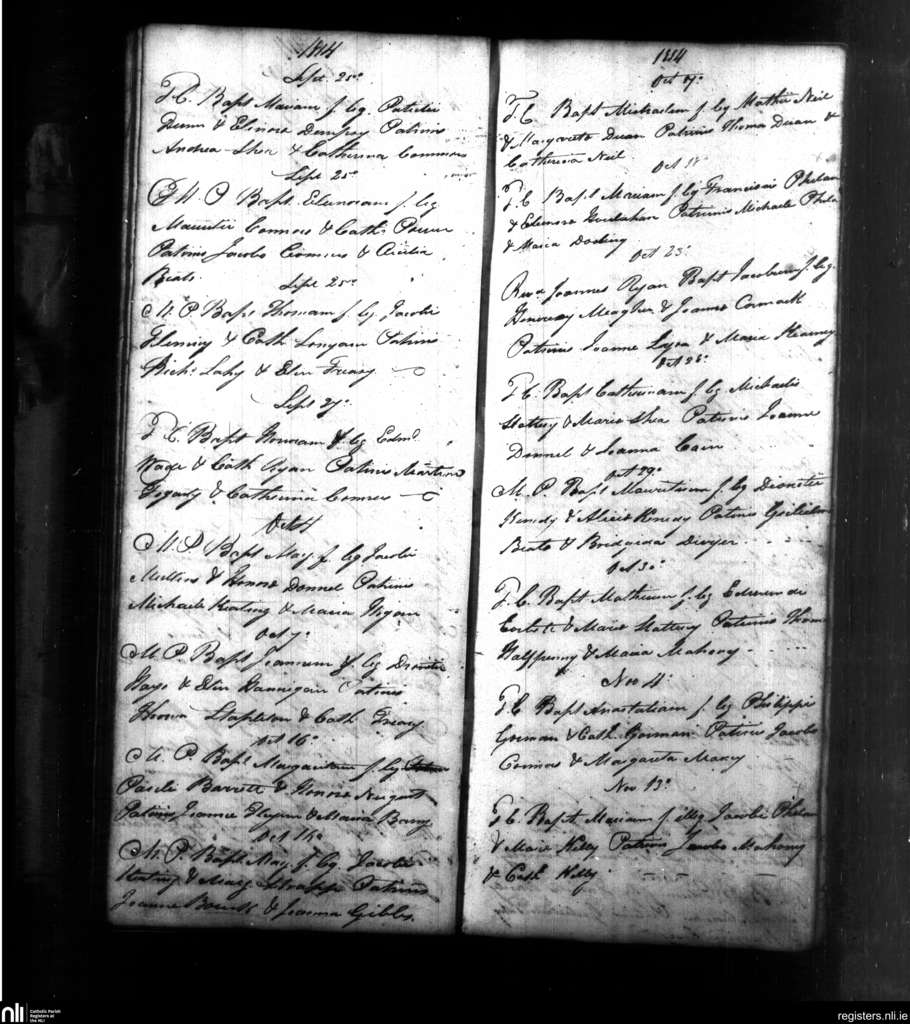 1814
Sept. 25º
T. C. Bapt Mariam f. leg. Patricii
Dunn & Elinora Dempsy Patrinis
Andrea Shea & Catherina Commons
Sept 25º
M. P. Bapt. Elenoram f. leg
Mauritii Connors & Cath. Power
Patrinis Jacobo Connors & Cicilia
Beats.
Sept 25º
M. P. Bapt Thomam f. leg. Jacobi
Fleming & Cath Lonyan Patrinis
Rich. Lahy & Elen Treacy
Sept 27º
T. C. Bapt Honoram f. leg Edmd.
Wade & Cath Ryan Patrinis Martino
Fogarty & Catherina Comers
Oct 4
M. P. Bapt Mary f. leg Jacobi
Mullins & Honora Donnel Patrinis
Michaele Keating & Maria Hogan
Oct 7º
M. P. Bapt Joannem f. leg Dionitii
Hays & Elin Hannigan Patrinis
Thoma Stapleton & Cath Treacy
Oct 16º
M. P. Bapt Margaritam f. leg
Barrett & Honora Nugent
Patrinis Joanne & Maria Barry
Oct 16º
M. P. Bapt Mary f. leg. Jacobi
Keating & Mary Patrinis
Joanne & Joanna Gibbs.
1814
Oct 17º
T. C. Bapt Michaelem f. leg Mathei Neil
& Margareta Duan Patrinis Thoma Duan &
Catherina Neil
Oct 18
T. C. Bapt Mariam f. leg Francisci Phelan
& Elenora Houlahan Patrinis Michaele Phela
& Maria Dooling
Oct 23º
Revd Joannes Ryan Bapt Jacobum f. leg.
Meagher & Joanna Cormack
Patrinis Joanne & Maria Kearney
Oct 26º
T. C. Bapt Catherinam f. leg Michaelis
Slattery & Maria Shea Patrinis Joanne
Donnel & Joanna Cain
Oct 29º
M. P. Bapt Mauritium f. leg Dionitii
Kenedy & Alicia Kenedy Patrinis Guilielmo
Beats & Bridgida Dwyer
Oct 30
T. C. Bapt Matheum f. leg Edmundi
& Maria Slattery Patrinis Thoma
Halfpenny & Maria Mahony
Nov 4
T. C. Bapt Anastatiam f. leg Philippi
Gorman & Cath Gorman Patrinis Jacobo
Connors & Margareta Many
Nov 13º
T. C. Bapt Mariam f. illeg Jacobi Phelan
& Maria Kelly Patrinis Jacobo Mahony
& Cath Kelly
nli
Catholic Parish
Registers at
the NLI
registers.nli.ie